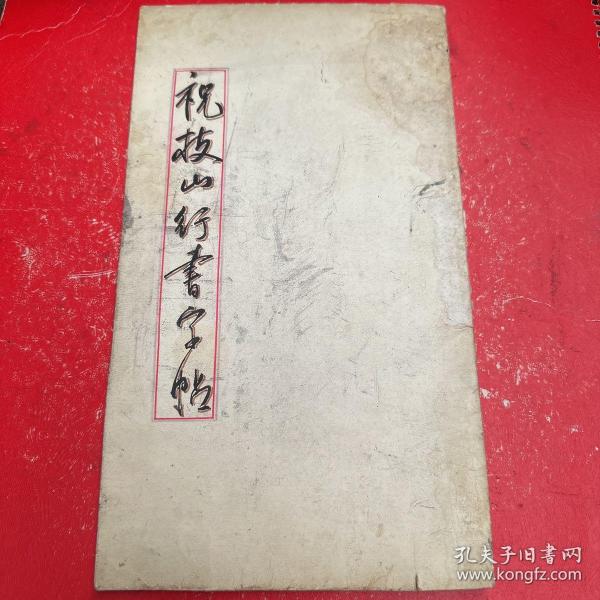 祝枝山行書字帖
孔夫子旧書网
www.kongfz.com